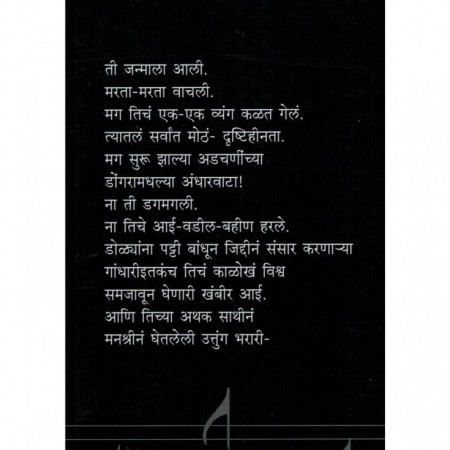 ती जन्माला आली.
मरता-मरता वाचली.
मग तिचं एक-एक व्यंग कळत गेलं.
त्यातलं सर्वांत मोठं- दृष्टिहीनता.
मग सुरू झाल्या अडचणींच्या
डोंगरामधल्या अंधारवाटा!
ना ती डगमगली.
ना तिचे आई-वडील-बहीण हरले.
डोळ्यांना पट्टी बांधून जिद्दीनं संसार करणाऱ्या
गांधारीइतकंच तिचं काळोखं विश्व
समजावून घेणारी खंबीर आई.
आणि तिच्या अथक साथीनं
मनश्रीनं घेतलेली उत्तुंग भरारी-